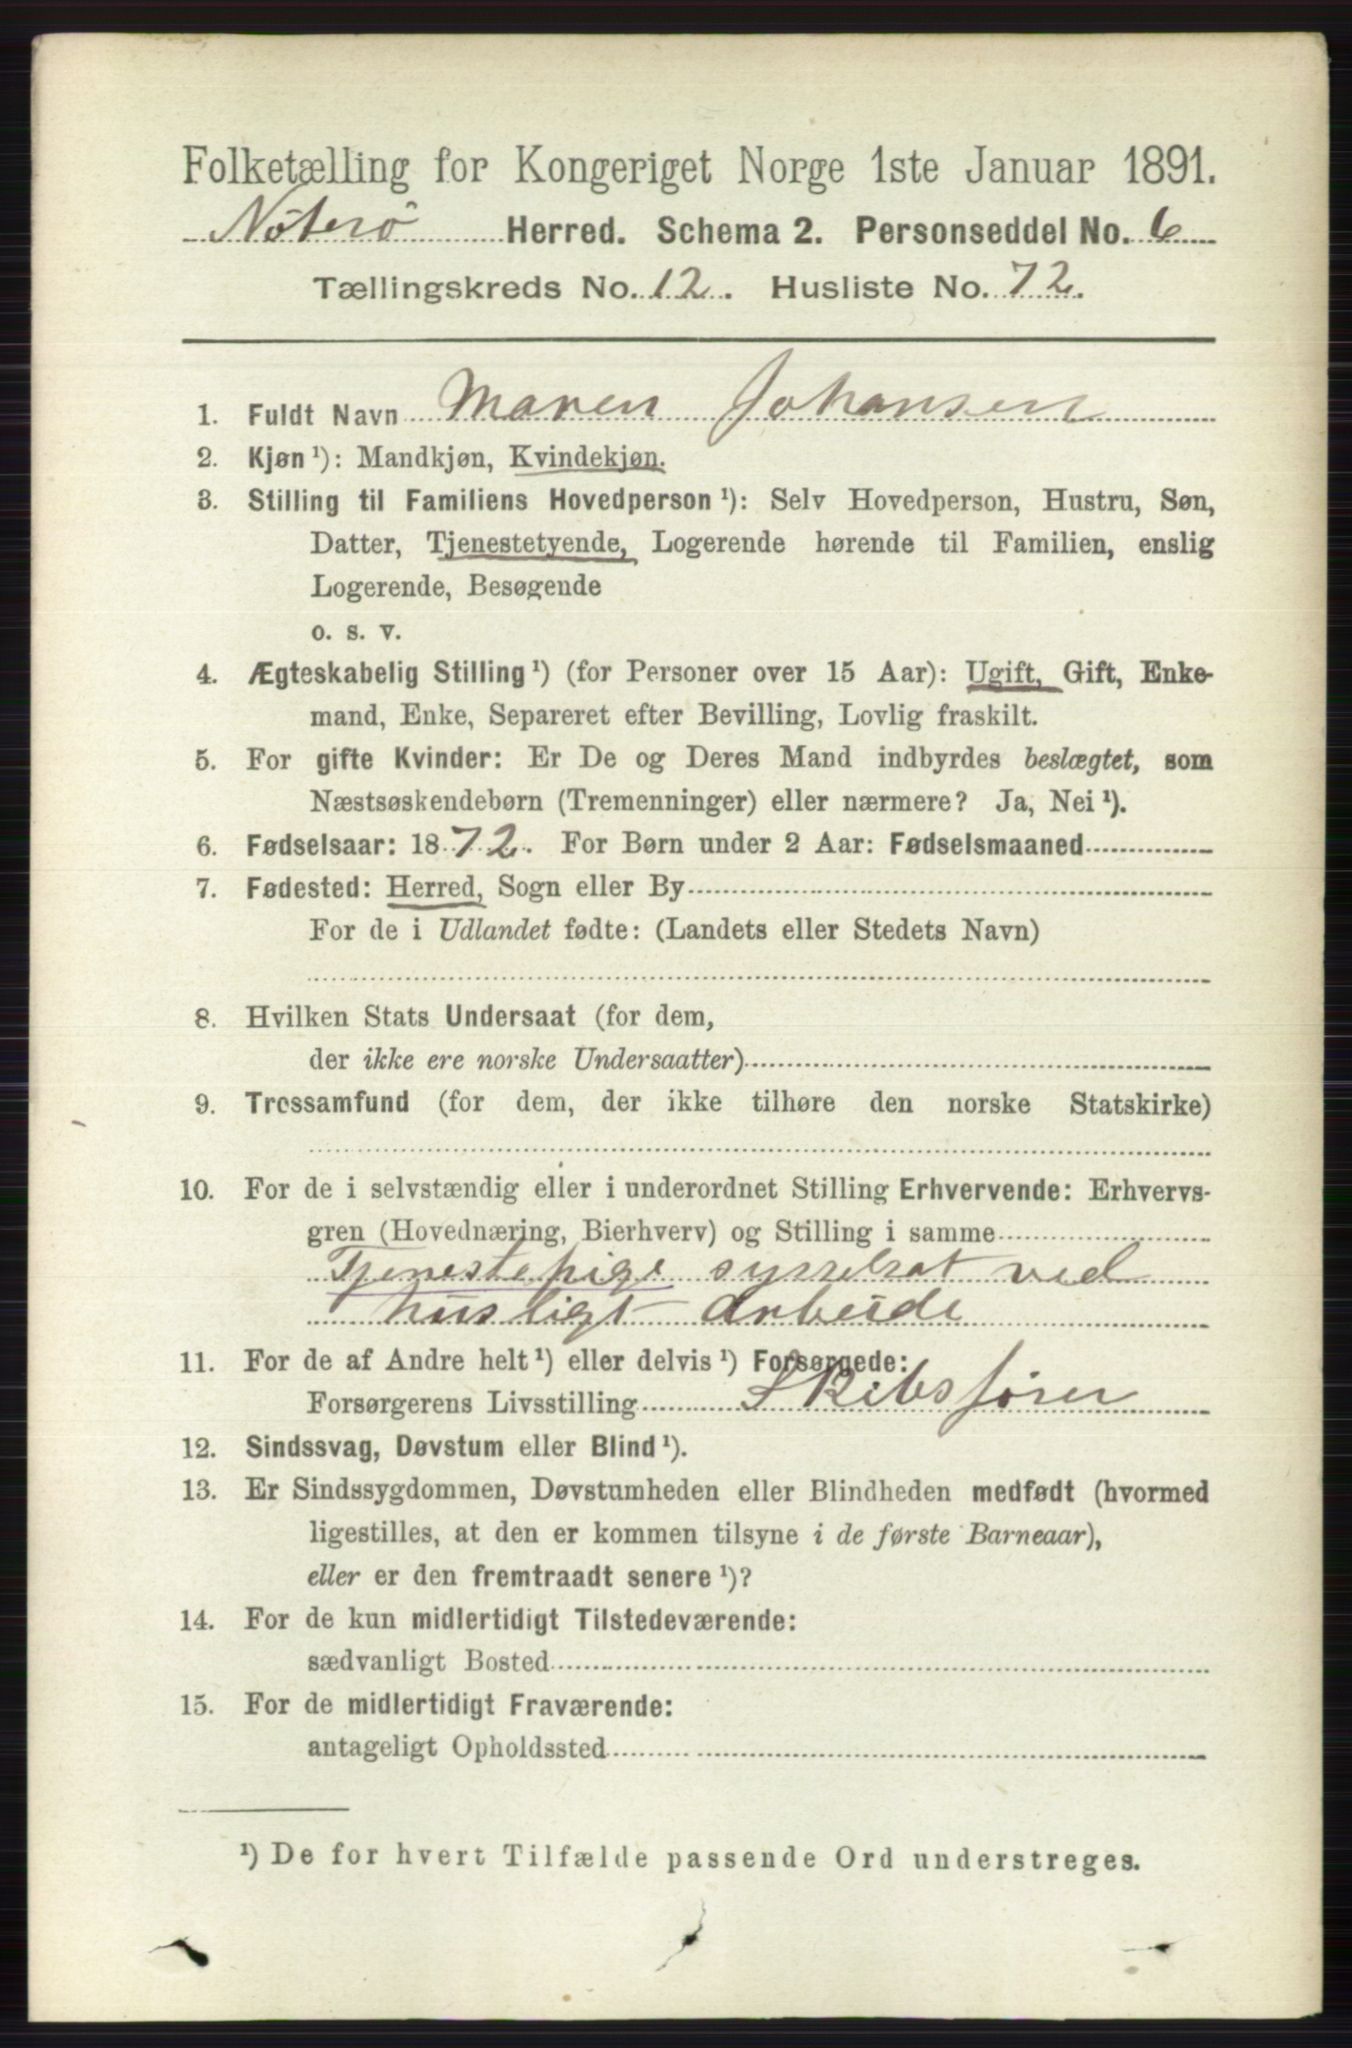 Folketælling for Kongeriget Norge 1ste Januar 1891.
Nøterø Herred. Schema 2. Personseddel No. 6
Tællingskreds No. 12. Husliste No. 72.
1. Fuldt Navn Maren Johansen
2. Kjøn ¹): Mandkjøn, Kvindekjøn.
3. Stilling til Familiens Hovedperson ¹): Selv Hovedperson, Hustru, Søn,
Datter, Tjenestetyende, Logerende hørende til Familien, enslig
Logerende, Besøgende
o. s. v.
4. Ægteskabelig Stilling ¹) (for Personer over 15 Aar): Ugift, Gift, Enke-
mand, Enke, Separeret efter Bevilling, Lovlig fraskilt.
5. For gifte Kvinder: Er De og Deres Mand indbyrdes beslægtet, som
Næstsøskendebørn (Tremenninger) eller nærmere? Ja, Nei ¹).
6. Fødselsaar: 1872. For Børn under 2 Aar: Fødselsmaaned
7. Fødested: Herred, Sogn eller By
For de i Udlandet fødte: (Landets eller Stedets Navn)
8. Hvilken Stats Undersaat (for dem,
der ikke ere norske Undersaatter)
9. Trossamfund (for dem, der ikke tilhøre den norske Statskirke)
10. For de i selvstændig eller i underordnet Stilling Erhvervende: Erhvervs-
gren (Hovednæring, Bierhverv) og Stilling i samme
Tjenestepige sysselsat ved
husligt Arbeide
11. For de af Andre helt ¹) eller delvis ¹) Forsørgede:
Forsørgerens Livsstilling Skibsfører
12. Sindssvag, Døvstum eller Blind ¹).
13. Er Sindssygdommen, Døvstumheden eller Blindheden medfødt (hvormed
ligestilles, at den er kommen tilsyne i de første Barneaar),
eller er den fremtraadt senere ¹)?
14. For de kun midlertidigt Tilstedeværende:
sædvanligt Bosted
15. For de midlertidigt Fraværende:
antageligt Opholdssted
¹) De for hvert Tilfælde passende Ord understreges.